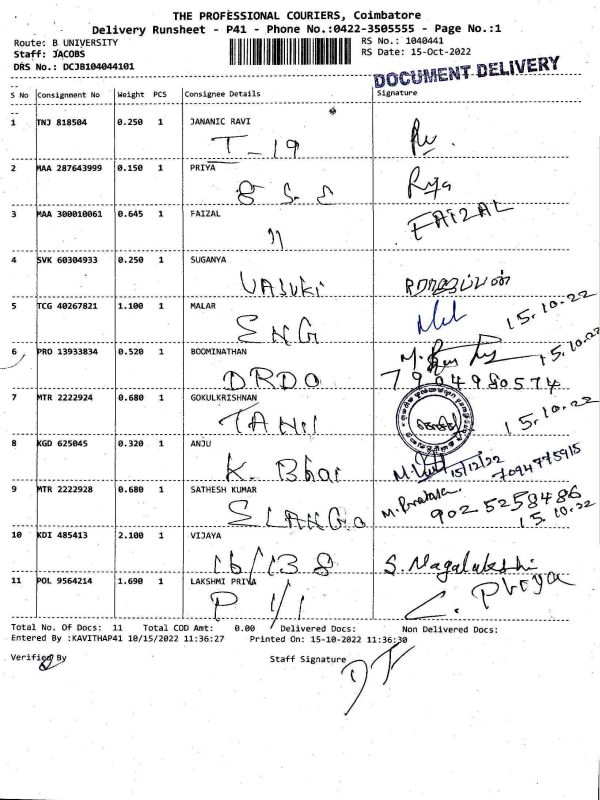 THE PROFESSIONAL COURIERS, Coimbatore
Delivery Runsheet - P41 - Phone No.:0422-3505555 - Page No.:1
Route: B UNIVERSITY RS No.: 1040441
Staff: JACOBS RS Date: 15-Oct-2022
DRS No.: DCJB104044101
DOCUMENT DELIVERY
S No Consignment No Weight PCS Consignee Details Signature
1 TNJ 818504 0.250 1 JANANIC RAVI
T-19
2 MAA 287643999 0.150 1 PRIYA
Riya
3 MAA 300010061 0.645 1 FAIZAL
11 FAIZAL
4 SVK 60304933 0.250 1 SUGANYA
VASUKI
5 TCG 40267821 1.100 1 MALAR
ENG 15.10.22
6 PRO 13933834 0.520 1 BOOMINATHAN
15.10.22
DRDO 7904980574
7 MTR 2222924 0.680 1 GOKULKRISHNAN
TAMIL 15.10.22
8 KGD 625045 0.320 1 ANJU
K. Bhai 15/12/22 7094775915
9 MTR 2222928 0.680 1 SATHESH KUMAR
ELANGO 9025258486
15.10.22
10 KDI 485413 2.100 1 VIJAYA
16/138 S. Nagalakshi
11 POL 9564214 1.690 1 LAKSHMI PRIYA
P 1/1 C. Phriya
Total No. Of Docs: 11 Total COD Amt: 0.00 Delivered Docs: Non Delivered Docs:
Entered By :KAVITHAP41 10/15/2022 11:36:27 Printed On: 15-10-2022 11:36:30
Verified By Staff Signature